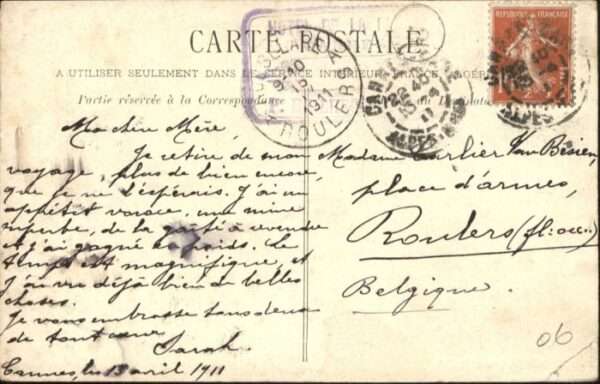 CARTE POSTALE
A UTILISER SEULEMENT DANS LE SERVICE INTÉRIEUR
Partie réservée à la Correspondance
RÉPUBLIQUE FRANÇAISE
ROULERS
1911
CANNES
ALPES
Ma chère Mère,
Je retire de mon
voyage, plus de bien encore,
que je ne l'espérais. J'ai un
appétit vorace, une mine
superbe, de la gaîté à revendre
et j'ai gagné en poids. Le
temps est magnifique, et
j'ai vu déjà bien de belles
choses.
Je vous embrasse tous deux
de tout cœur
Sarah.
Cannes, le 13 avril 1911
Madame Carlier Van Bésien,
place d'armes,
Roulers (fl: occ:)
Belgique.
06